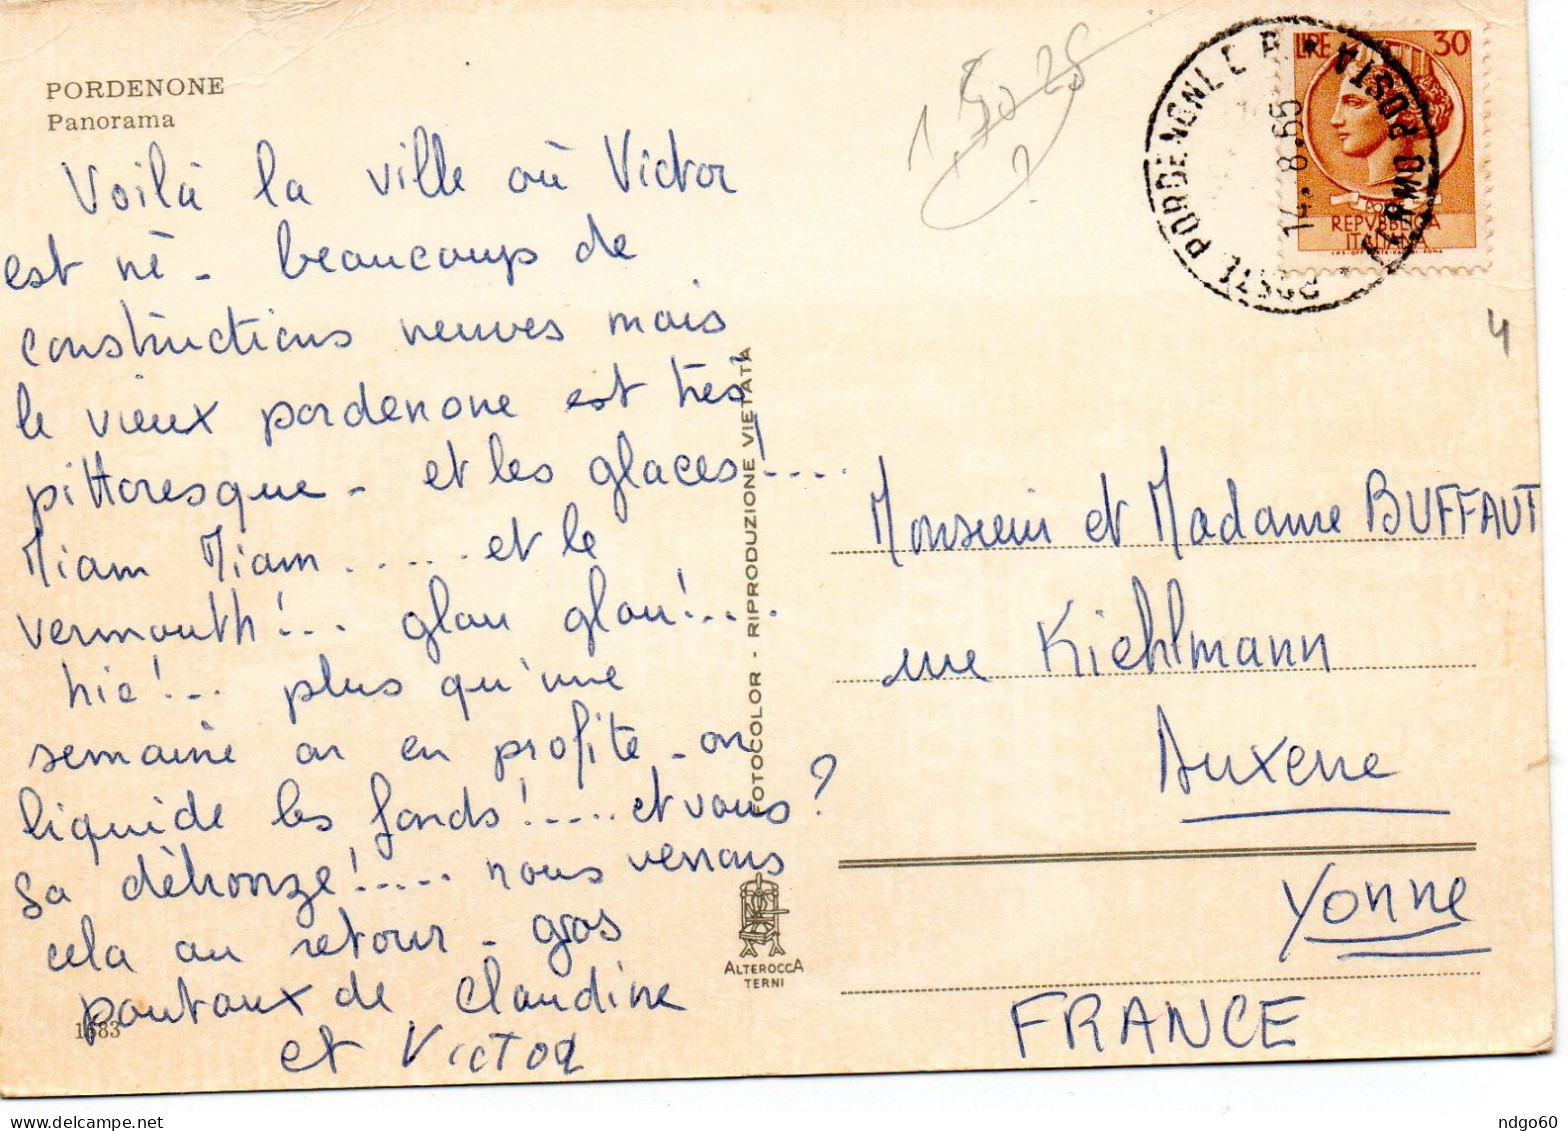 PORDENONE
Panorama
Voilà la ville où Victor
est né - beaucoups de
constructions neuves mais
le vieux pordenone est très
pittoresque - et les glaces!....
Miam Miam ..... et le
vermouth!... glou glou!...
hic!... plus qu'une
semaine on en profite - on
liquide les fonds!..... et vous?
sa déhonze!..... nous verrons
cela au retour - gros
poutoux de Claudine
et Victor
1583
FOTOCOLOR - RIPRODUZIONE VIETATA
ALTEROCCA
TERNI
1,50 25
?
LIRE 30
REPVBBLICA
ITALIANA
POSTE PORDENONE C.P. * FERMO POSTA
14.8.65
4
Monsieur et Madame BUFFAUT
rue Kiehlmann
Auxerre
Yonne
FRANCE
ndgo60